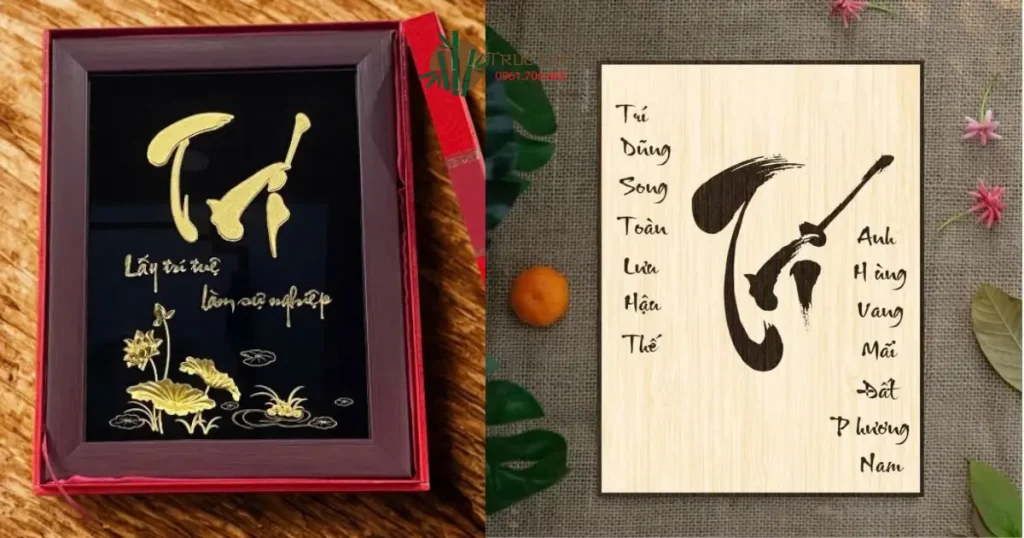 Trí
Lấy trí tuệ
làm sự nghiệp
Trí
Trí
Dũng
Song
Toàn
Lưu
Hậu
Thế
Anh
Hùng
Vang
Mãi
Đất
Phương
Nam